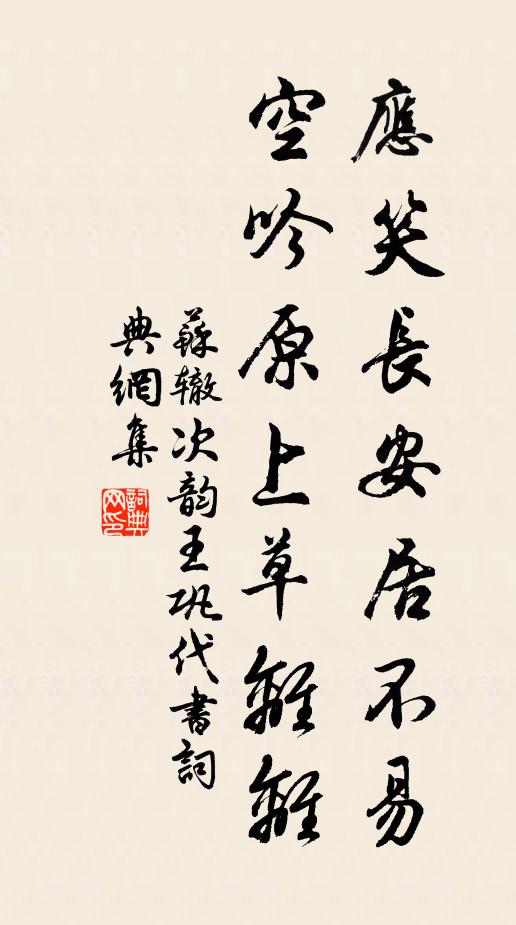 應笑長安居不易
空吟原上草離離
蘇轍次韵王巩代書詞
典網集
詞典
网印